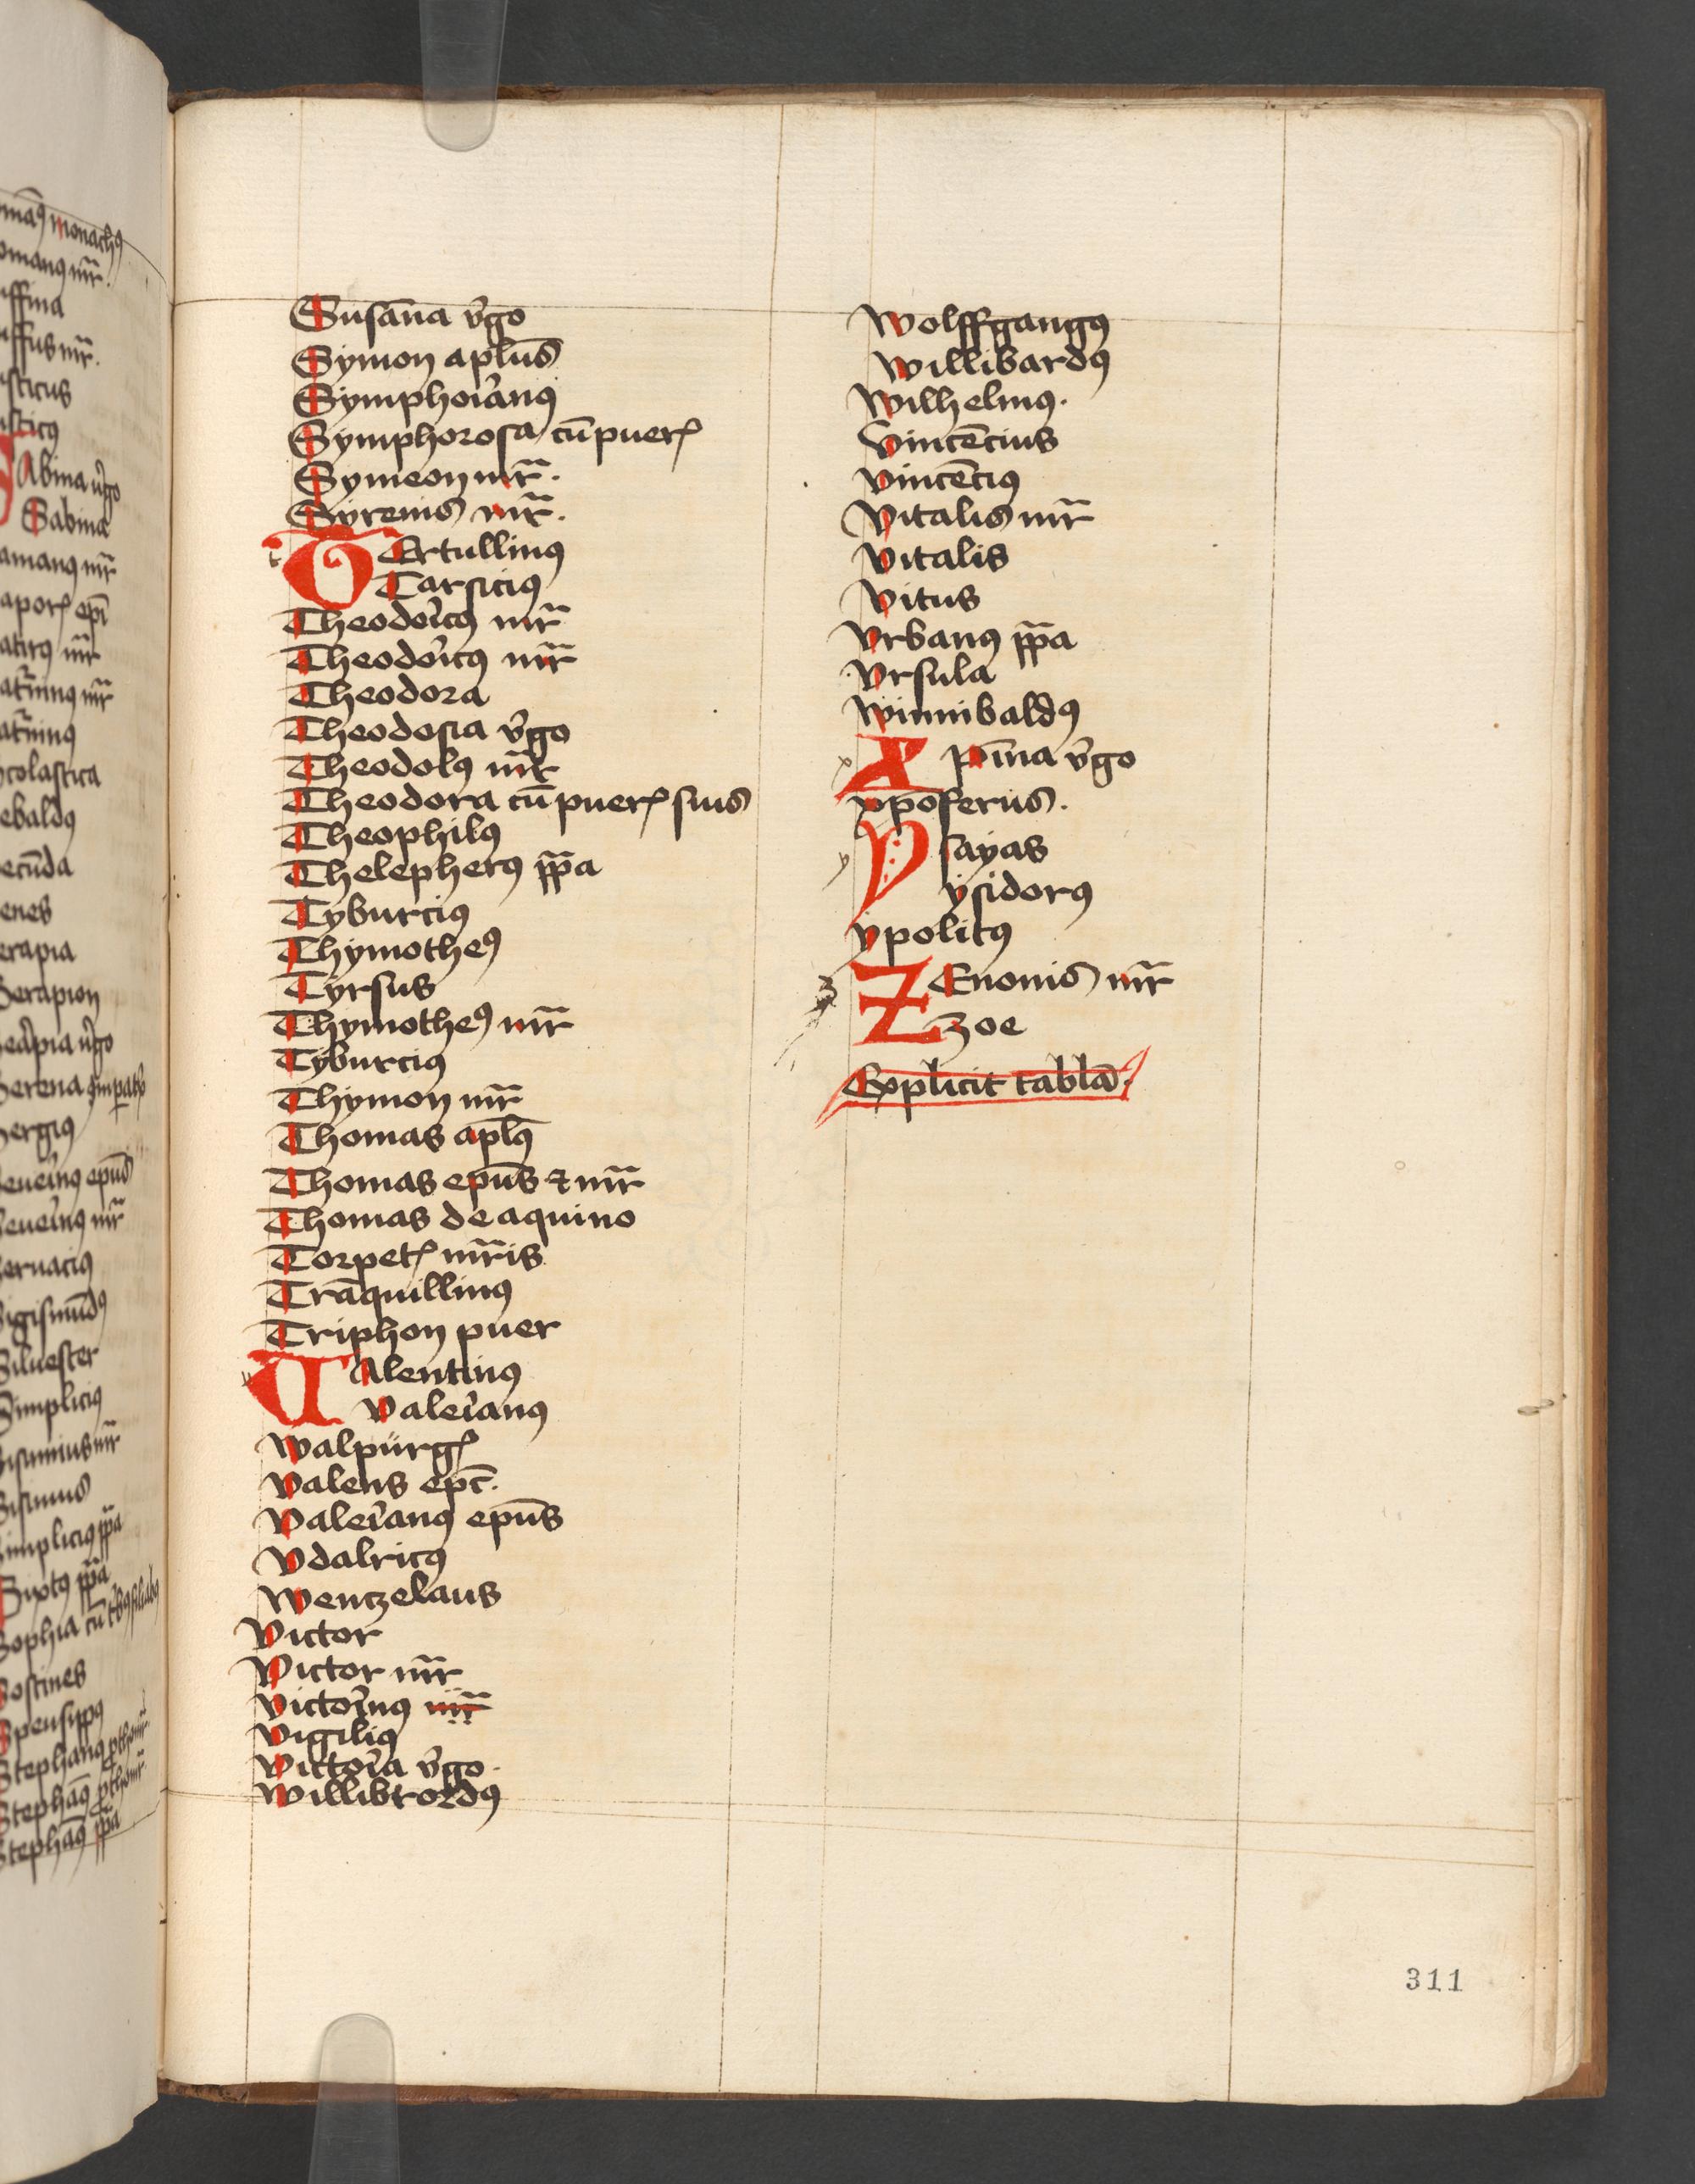 Susāna v̔go
Symon aplūs
Symphoriānꝰ
Symphorosa cū pueꝝ
Symeon mr̄.
Syrenis mr̄.
TErtullinꝰ
Tarsiciꝰ
Theodoricꝰ mr̄
Theodoricꝰ mr̄
Theodora
Theodosia v̔go
Theodolꝰ mr̄
Theodora cū pueꝝ suis
Theophilꝰ
Thelepherꝰ pp̄a
Tyburciꝰ
Thymotheꝰ
Tyrsus
Thymotheꝰ mr̄
Tyburciꝰ
Thymon mr̄
Thomas aplꝰ̄
Thomas epūs ⁊ mr̄
Thomas de aquino
Torpetꝭ mr̄is
Trāquillinꝰ
Triphon puer
VAlentinꝰ
Valerianꝰ
Walpürgꝭ
Valens epc̄.
Valerianꝰ epūs
Vdalricꝰ
Wenczelaus
Victor
Victor mr̄
Victorinꝰ mr̄
Vigiliꝰ
Victoria v̔go.
Willibrordꝰ
Wolffgangꝰ
Willibardꝰ
Wilhelmꝰ.
Vincēcius
Vincēciꝰ
Vitalis mr̄
Vitalis
Vitus
Vrbanꝰ pp̄a
Vrsula
Winnibaldꝰ
Xp̄ina v̔go
xpoferus.
Ysayas
ysidorꝰ
ypolitꝰ
ZEnonis mr̄
zoe
Explicit tablā.
311